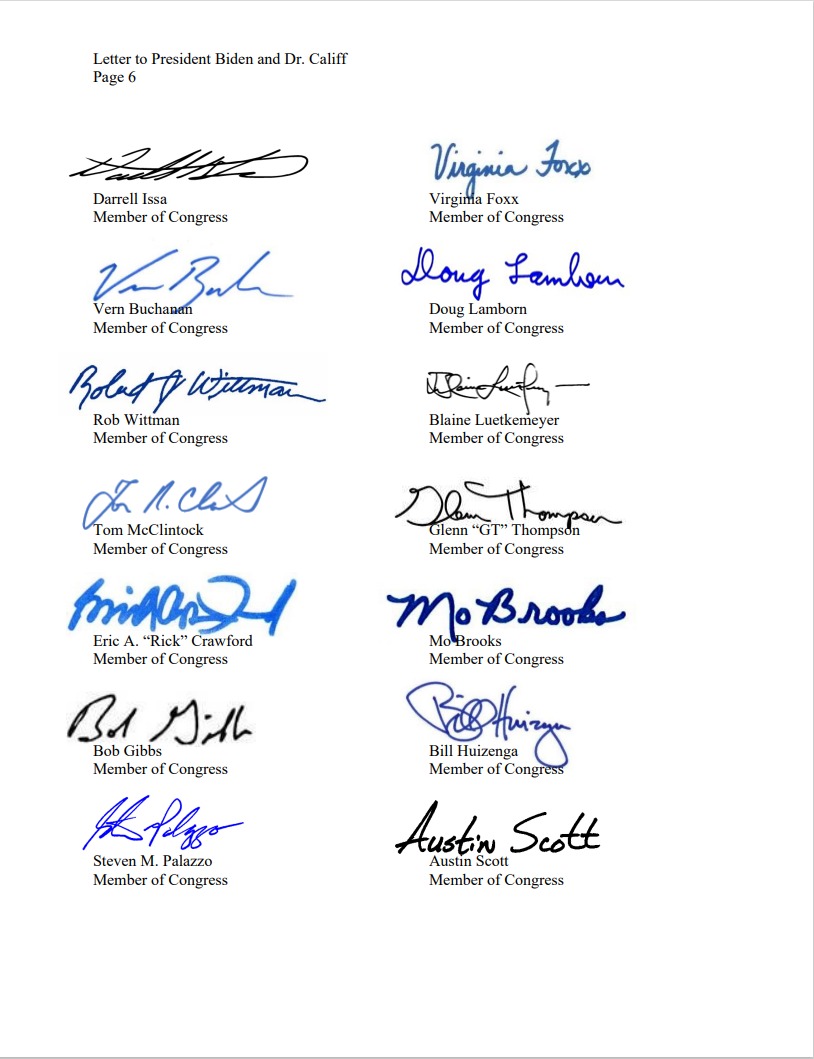 Letter to President Biden and Dr. Califf
Page 6
Virginia Foxx
Darrell Issa
Member of Congress
Virginia Foxx
Member of Congress
Vern Buchanan
Member of Congress
Doug Lamborn
Doug Lamborn
Member of Congress
Robert J Wittman
Rob Wittman
Member of Congress
Blaine Luetkemeyer
Member of Congress
Tom McClintock
Member of Congress
Glenn Thompson
Glenn “GT” Thompson
Member of Congress
Eric A. “Rick” Crawford
Member of Congress
Mo Brooks
Mo Brooks
Member of Congress
Bob Gibbs
Bob Gibbs
Member of Congress
Bill Huizenga
Bill Huizenga
Member of Congress
Steven M. Palazzo
Member of Congress
Austin Scott
Austin Scott
Member of Congress